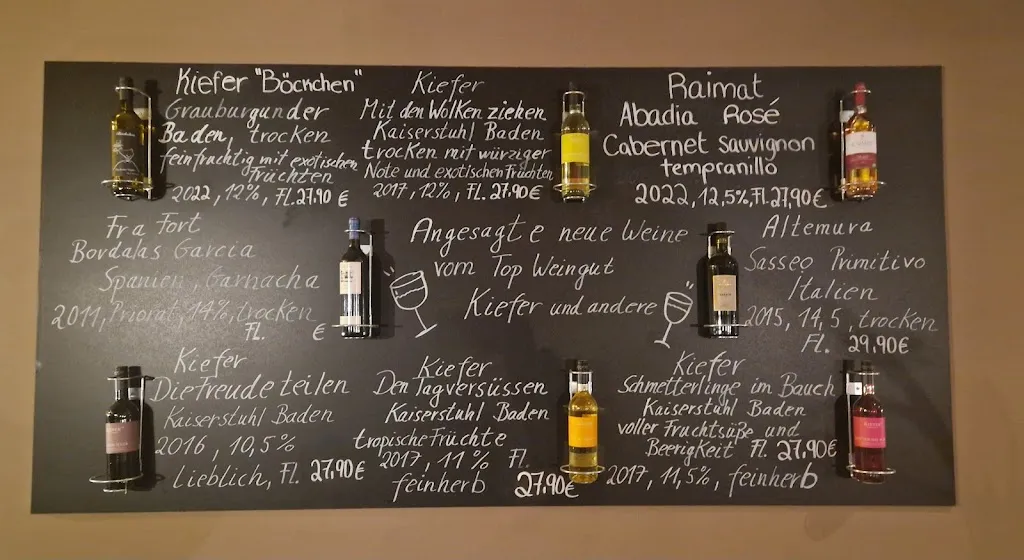 Kiefer "Böckchen"
Grauburgunder
Baden, trocken
feinfruchtig mit exotischen
Früchten
2022, 12%, Fl. 27,90 €
Kiefer
Mit den Wolken ziehen
Kaiserstuhl Baden
trocken mit würziger
Note und exotischen Früchten
2017, 12%, Fl. 27,90€
Raimat
Abadia Rosé
Cabernet Sauvignon
tempranillo
2022, 12,5%, Fl. 27,90€
Fra Fort
Bordalas Garcia
Spanien, Garnacha
2011, Priorat, 14%, trocken
Fl. €
Angesagte neue Weine
vom Top Weingut
Kiefer und andere
Altemura
Sasseo Primitivo
Italien
2015, 14,5, trocken
Fl. 29,90€
Kiefer
Die Freude teilen
Kaiserstuhl Baden
2016, 10,5%
Lieblich, Fl. 27,90€
Kiefer
Den Tag versüssen
Kaiserstuhl Baden
tropische Früchte
2017, 11% Fl.
feinherb 27,90€
Kiefer
Schmetterlinge im Bauch
Kaiserstuhl Baden
voller Fruchtsüße und
Beerigkeit Fl. 27,90€
2017, 11,5%, feinherb